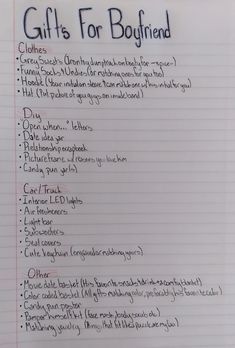 Gifts For Boyfriend
Clothes
• Grey Sweats
• Funny Socks + Undies (or matching ones for you too)
• Hoodie (Your initial on sleeve + can match one w/ his initial for you)
• Hat (Put picture of you guys on inside band)
Diy
• "Open when..." letters
• Date idea jar
• Relationship scrapbook
• Picture frame w/ reasons you love him
• Candy pun gifts
Car/Truck
• Interior LED lights
• Air fresheners
• Light bar
• Subwoofers
• Seat covers
• Cute keychain (engraved or matching yours)
Other
• Movie date basket (his favorite snacks + drink + a comfy blanket)
• Color coded basket (All gifts matching color, preferably his favorite color)
• Candy pun poster
• Pamper himself kit (face mask, lotion, socks, etc)
• Matching jewelry